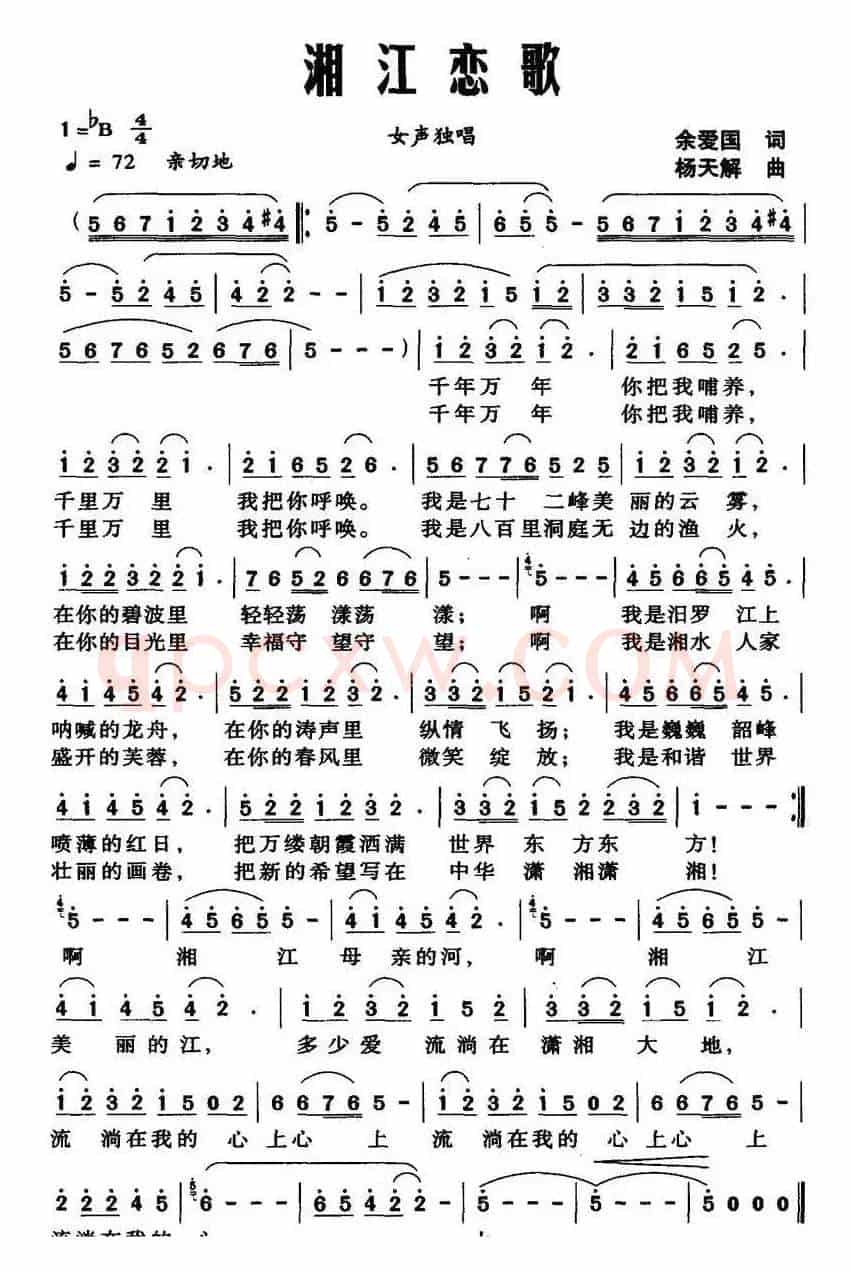 湘江恋歌
1=♭B 4/4 女声独唱 余爱国 词
♩= 72 亲切地 杨天解 曲
( 5 6 7 1 2 3 4 #4 ‖: 5 - 5 2 4 5 | 6 5 5 - 5 6 7 1 2 3 4 #4 |
5 - 5 2 4 5 | 4 2 2 - - | 1 2 3 2 1 5 1 2 | 3 3 2 1 5 1 2 . |
5 6 7 6 5 2 6 7 6 | 5 - - - ) | 1 2 3 2 1 2 . | 2 1 6 5 2 5 . |
千年万 年 你把我哺养，
千年万 年 你把我哺养，
1 2 3 2 2 1 . | 2 1 6 5 2 6 . | 5 6 7 7 6 5 2 5 | 1 2 3 2 1 2 . |
千里万 里 我把你呼唤。 我是七十 二峰美 丽的云 雾，
千里万 里 我把你呼唤。 我是八百里洞庭无 边的渔 火，
1 2 2 3 2 2 1 . | 7 6 5 2 6 6 7 6 | 5 - - - | 5 - - - | 4 5 6 6 5 4 5 . |
在你的碧波里 轻轻荡 漾荡 漾； 啊 我是汨罗 江上
在你的目光里 幸福守 望守 望； 啊 我是湘水 人家
4 1 4 5 4 2 . | 5 2 2 1 2 3 2 . | 3 3 2 1 5 2 1 . | 4 5 6 6 5 4 5 . |
呐喊的龙舟， 在你的涛声里 纵情 飞 扬； 我是巍巍 韶峰
盛开的芙蓉， 在你的春风里 微笑 绽 放； 我是和谐 世界
4 1 4 5 4 2 . | 5 2 2 1 2 3 2 . | 3 3 2 1 5 2 3 2 | 1 - - - :‖
喷薄的红日， 把万缕朝霞洒满 世界 东 方东 方！
壮丽的画卷， 把新的希望写在 中华 潇 湘潇 湘！
5 - - - | 4 5 6 5 5 - | 4 1 4 5 4 2 . | 5 - - - | 4 5 6 5 5 - |
啊 湘 江 母 亲的河， 啊 湘 江
4 1 4 5 4 2 . | 1 2 3 2 1 5 2 | 3 3 2 1 5 1 2 . |
美 丽的江， 多少爱 流淌在 潇湘 大 地，
1 2 3 2 1 5 0 2 | 6 6 7 6 5 - | 1 2 3 2 1 5 0 2 | 6 6 7 6 5 - |
流 淌在我的 心 上心 上 流 淌在我的 心 上心 上
2 2 2 4 5 | 6 - - - | 6 5 4 2 2 - | 5 - - - | 5 - - - | 5 0 0 0 ‖
流淌在我的 心 上
qpcxw.COM